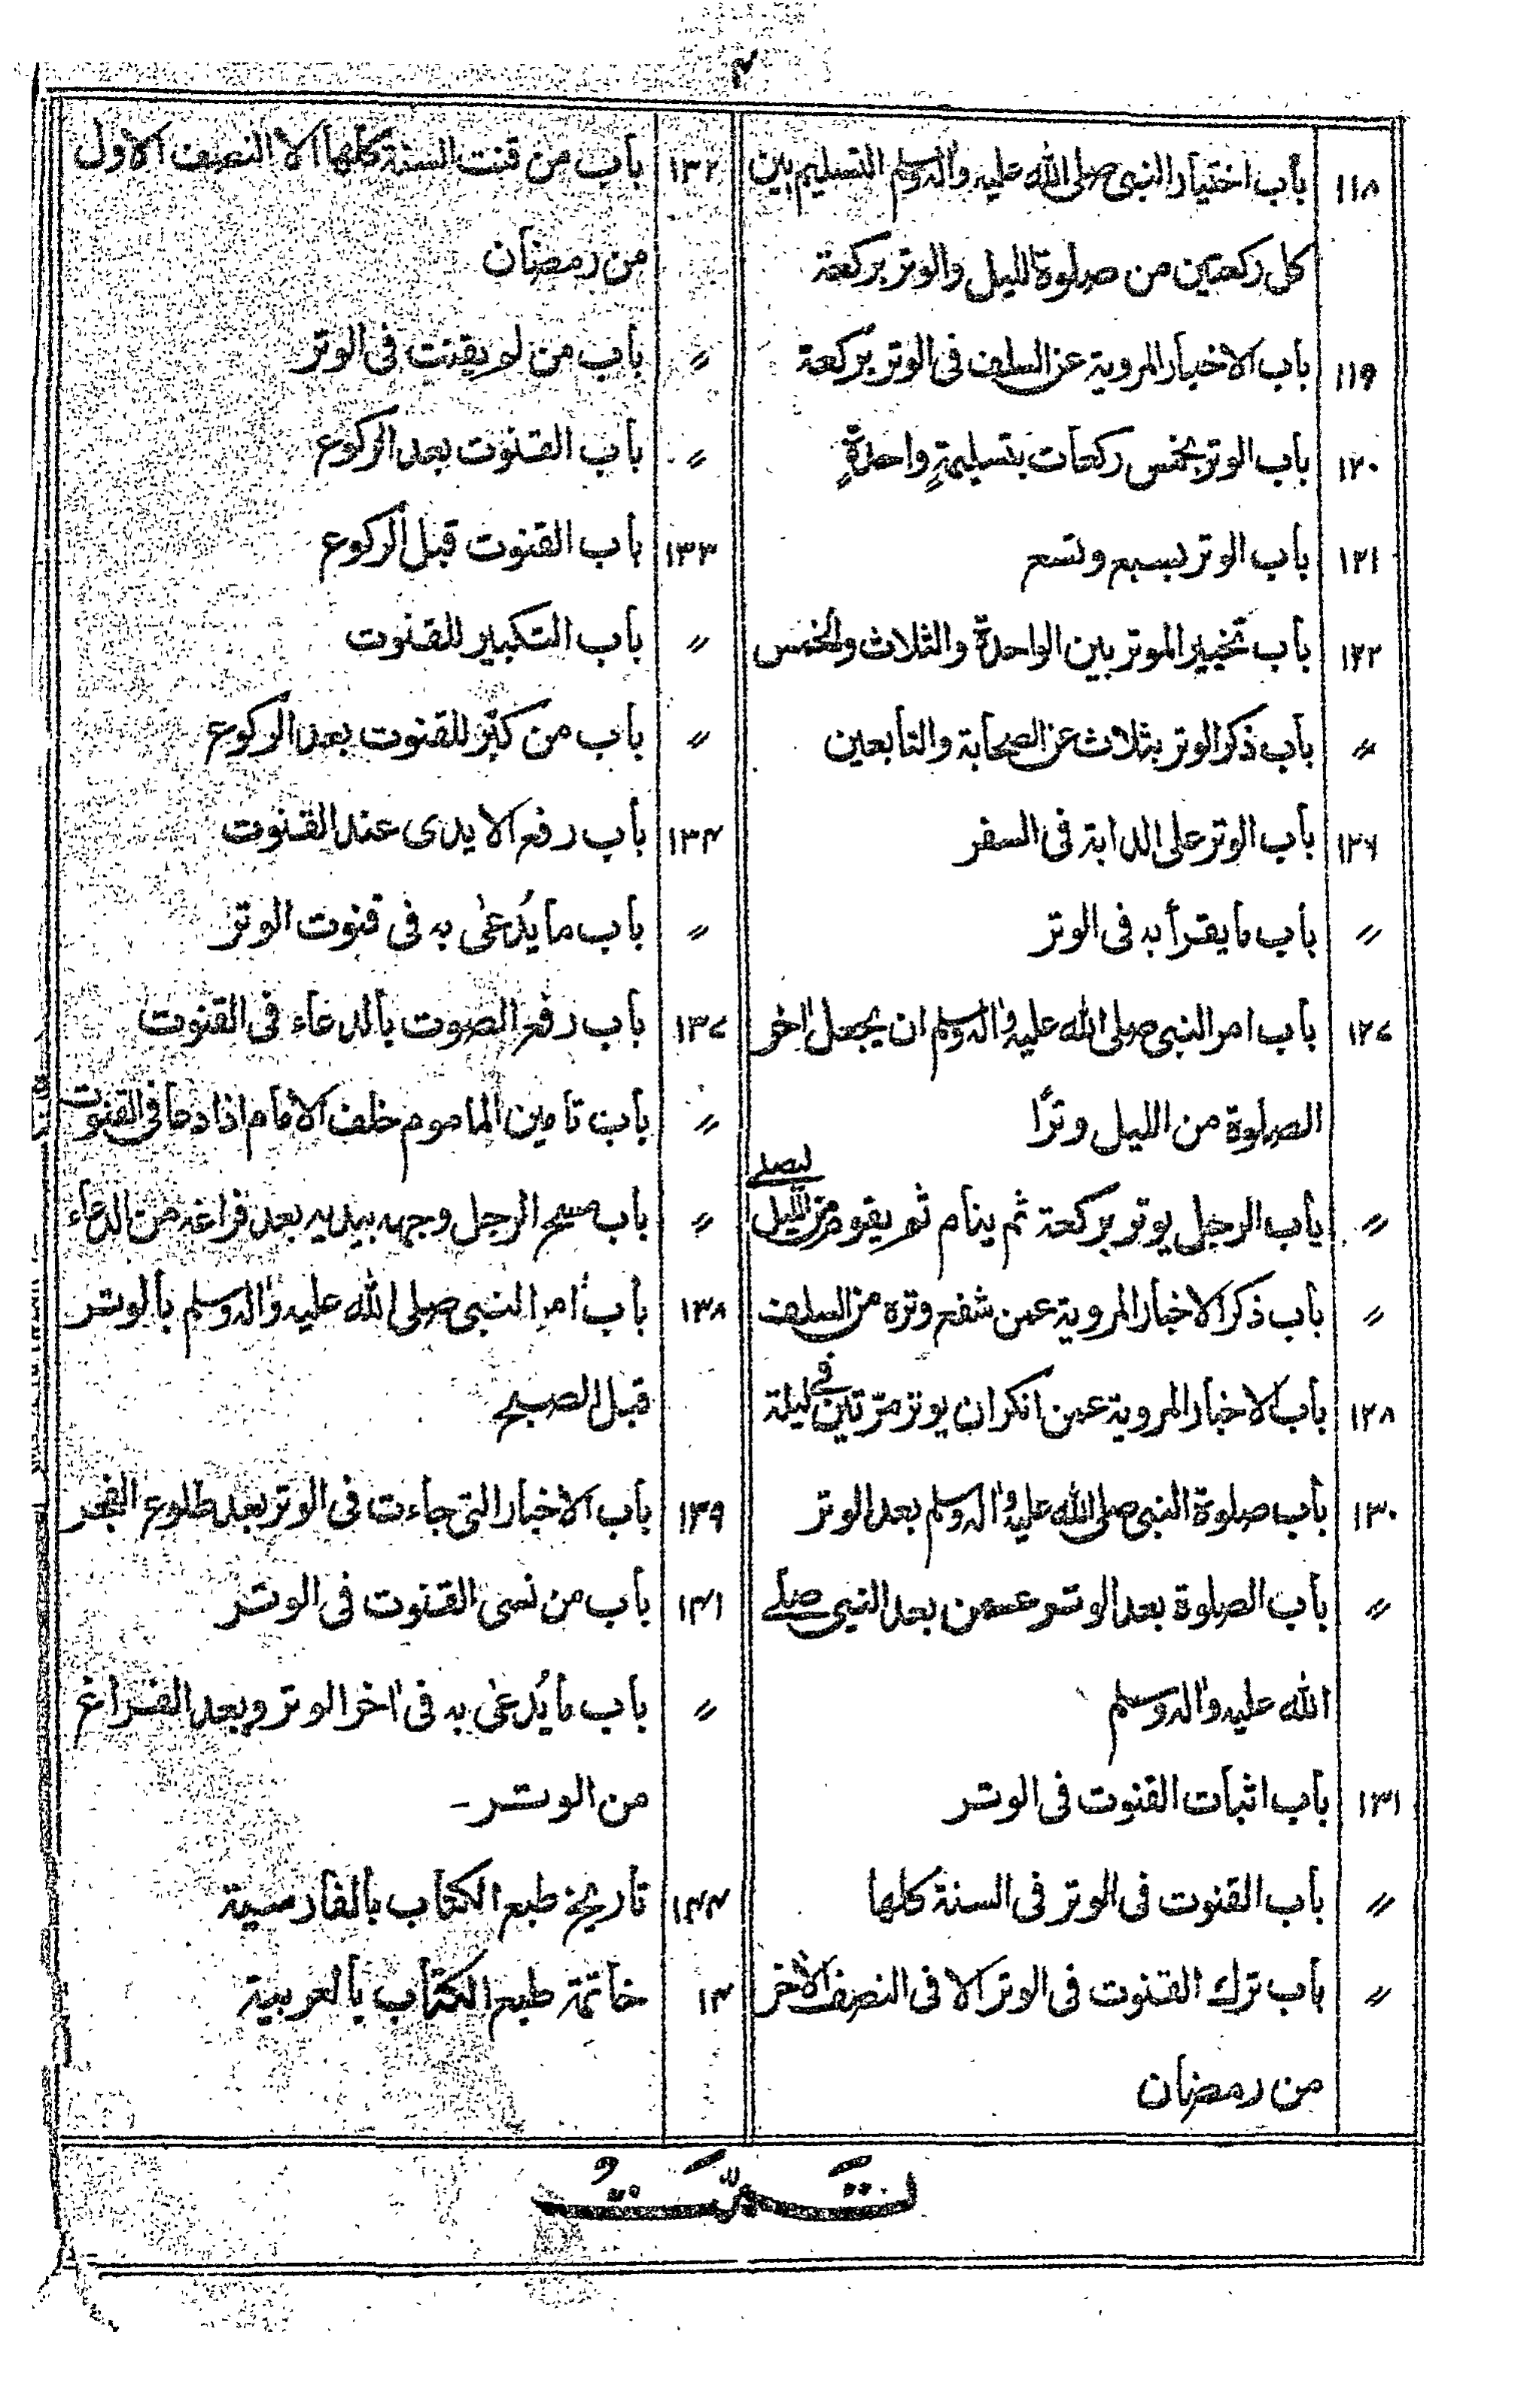 ۴
۱۱۸ باب اختيار النبى صلى الله عليه واٰله وسلم التسليم بين
كل ركعتين من صلوة الليل والوتر بركعة
۱۱۹ باب الاخبار المروية عن السلف فى الوتر بركعة
۱۲۰ باب الوتر بخمس ركعات بتسليمةٍ واحدةٍ
۱۲۱ باب الوتر بسبع وتسع
۱۲۲ باب تخيير الموتر بين الواحدة والثلاث والخمس
〃 باب ذكر الوتر بثلاث عن الصحابة والتابعين
۱۲۶ باب الوتر على الدابة فى السفر
〃 باب ما يقرأ به فى الوتر
۱۲۷ باب امر النبى صلى الله عليه واٰله وسلم ان يجعل اٰخر
الصلوة من الليل وترًا
〃 باب الرجل يوتر بركعة ثم ينام ثم يقوم من الليل ليصلے
〃 باب ذكر الاخبار المروية عمن شفع وتره من السلف
۱۲۸ باب الاخبار المروية عمن انكر ان يوتر مرّتين فے ليلة
۱۳۰ باب صلوة النبى صلى الله عليه واٰله وسلم بعد الوتر
〃 باب الصلوة بعد الوتر عمن بعد النبى صلے
الله عليه واٰله وسلم
۱۳۱ باب اثبات القنوت فى الوتر
〃 باب القنوت فى الوتر فى السنة كلها
〃 باب ترك القنوت فى الوتر الا فى النصف الاٰخر
من رمضان
۱۳۲ باب من قنت السنة كلها الا النصف الاول
من رمضان
〃 باب من لم يقنت فى الوتر
〃 باب القنوت بعد الركوع
۱۳۳ باب القنوت قبل الركوع
〃 باب التكبير للقنوت
〃 باب من كبّر للقنوت بعد الركوع
۱۳۴ باب رفع الايدى عند القنوت
〃 باب ما يُدعٰى به فى قنوت الوتر
۱۳۷ باب رفع الصوت بالدعاء فى القنوت
〃 باب تامين الماموم خلف الامام اذا دعا فى القنوت
〃 باب مسح الرجل وجهه بيديه بعد فراغه من الدعاء
۱۳۸ باب امر النبى صلى الله عليه واٰله وسلم بالوتر
قبل الصبح
۱۳۹ باب الاخبار التى جاءت فى الوتر بعد طلوع الفجر
۱۴۱ باب من نسى القنوت فى الوتر
〃 باب ما يُدعٰى به فى اٰخر الوتر وبعد الفراغ
من الوتر ۔
۱۴۴ تاريخ طبع الكتاب بالفارسية
۱۴ خاتمة طبع الكتاب بالعربية
تَمَّتُ